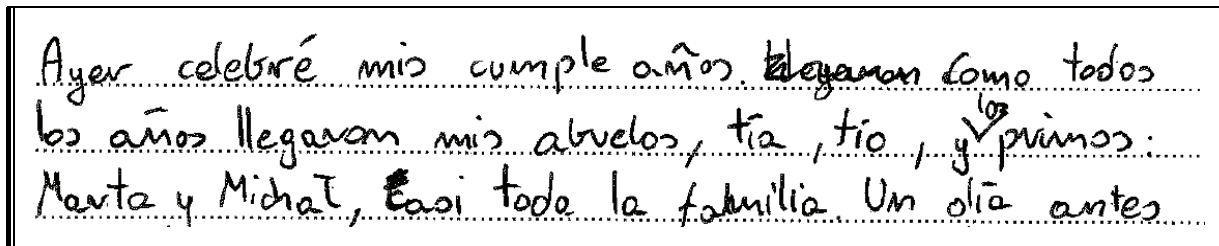 Ayer celebré mis cumple años. Llegaron Como todos
los años llegaron mis abuelos, tía, tío, y los primos:
Marta y Michał, Casi toda la familia. Un día antes